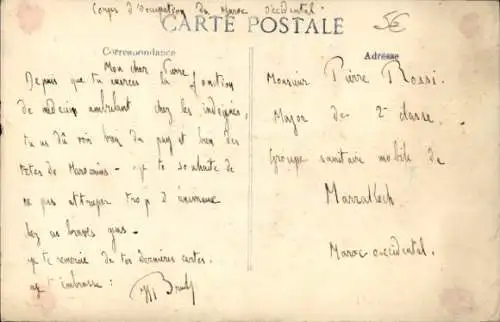 Corps d'Occupation du Maroc Occidental.
CARTE POSTALE
5€
Correspondance
Adresse
Mon cher Pierre
Depuis que tu exerces la fonction
de médecin ambulant chez les indigènes,
tu as dû voir bien du pays et bien des
têtes de Marocains - je te souhaite de
ne pas attraper trop d'
chez ces braves gens -
je te remercie de tes dernières cartes.
je t'embrasse :
Monsieur Pierre Rossi.
Major de 2e classe.
Groupe sanitaire mobile de
Marrakech
Maroc occidental.